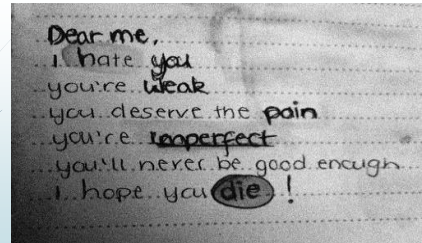 Dear me,
I hate you
you're weak
you deserve the pain
you're imperfect
you'll never be good enough
I hope you die!